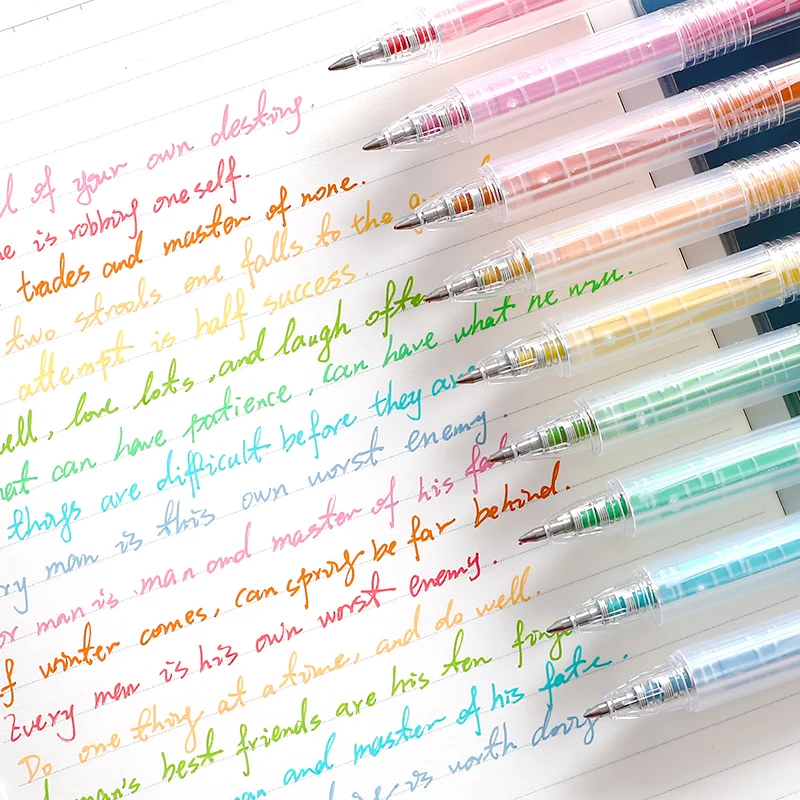 of your own destiny.
is robbing oneself.
trades and master of none.
two strools one falls to the
attempt is half success.
well, love lots, and laugh
can have patience, can have what he will.
things are difficult before they are
man is this own worst enemy.
man is man and master of his
winter comes, can spring be far behind.
Every man is his own worst enemy.
Do one thing at a time, and do well.
man's best friends are his ten
and master of his fate.
is worth doing